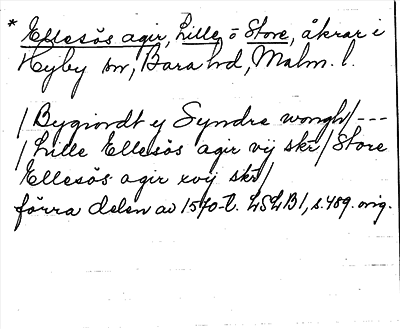 * Ellesös agir, Lille o Store, åkrar i
Hyby sn, Bara hd, Malm. l.
/ Bygiordt ey Syndre wongh / ---
/ Lille Ellesös agir vij skr / Store
Ellesös agir xvij skr /
förra delen av 1570-t. LSLB 1, s. 489. orig.